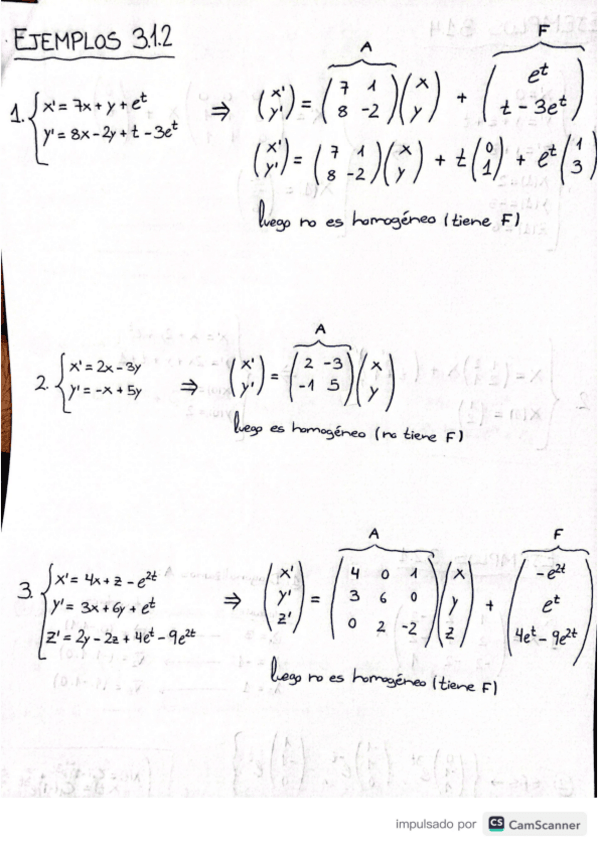 EJEMPLOS 3.1.2
A
F
1. { x' = 7x + y + e^t
y' = 8x - 2y + t - 3e^t
⇒ (x' y') = (7 1 8 -2)(x y) + (e^t t - 3e^t)
(x' y') = (7 1 8 -2)(x y) + t(0 1) + e^t(1 3)
luego no es homogéneo (tiene F)
A
2. { x' = 2x - 3y
y' = -x + 5y
⇒ (x' y') = (2 -3 -1 5)(x y)
luego es homogéneo (no tiene F)
A
F
3. { x' = 4x + z - e^2t
y' = 3x + 6y + e^t
z' = 2y - 2z + 4e^t - 9e^2t
⇒ (x' y' z') = (4 0 1 3 6 0 0 2 -2)(x y z) + (-e^2t e^t 4e^t - 9e^2t)
luego no es homogéneo (tiene F)
impulsado por CS CamScanner